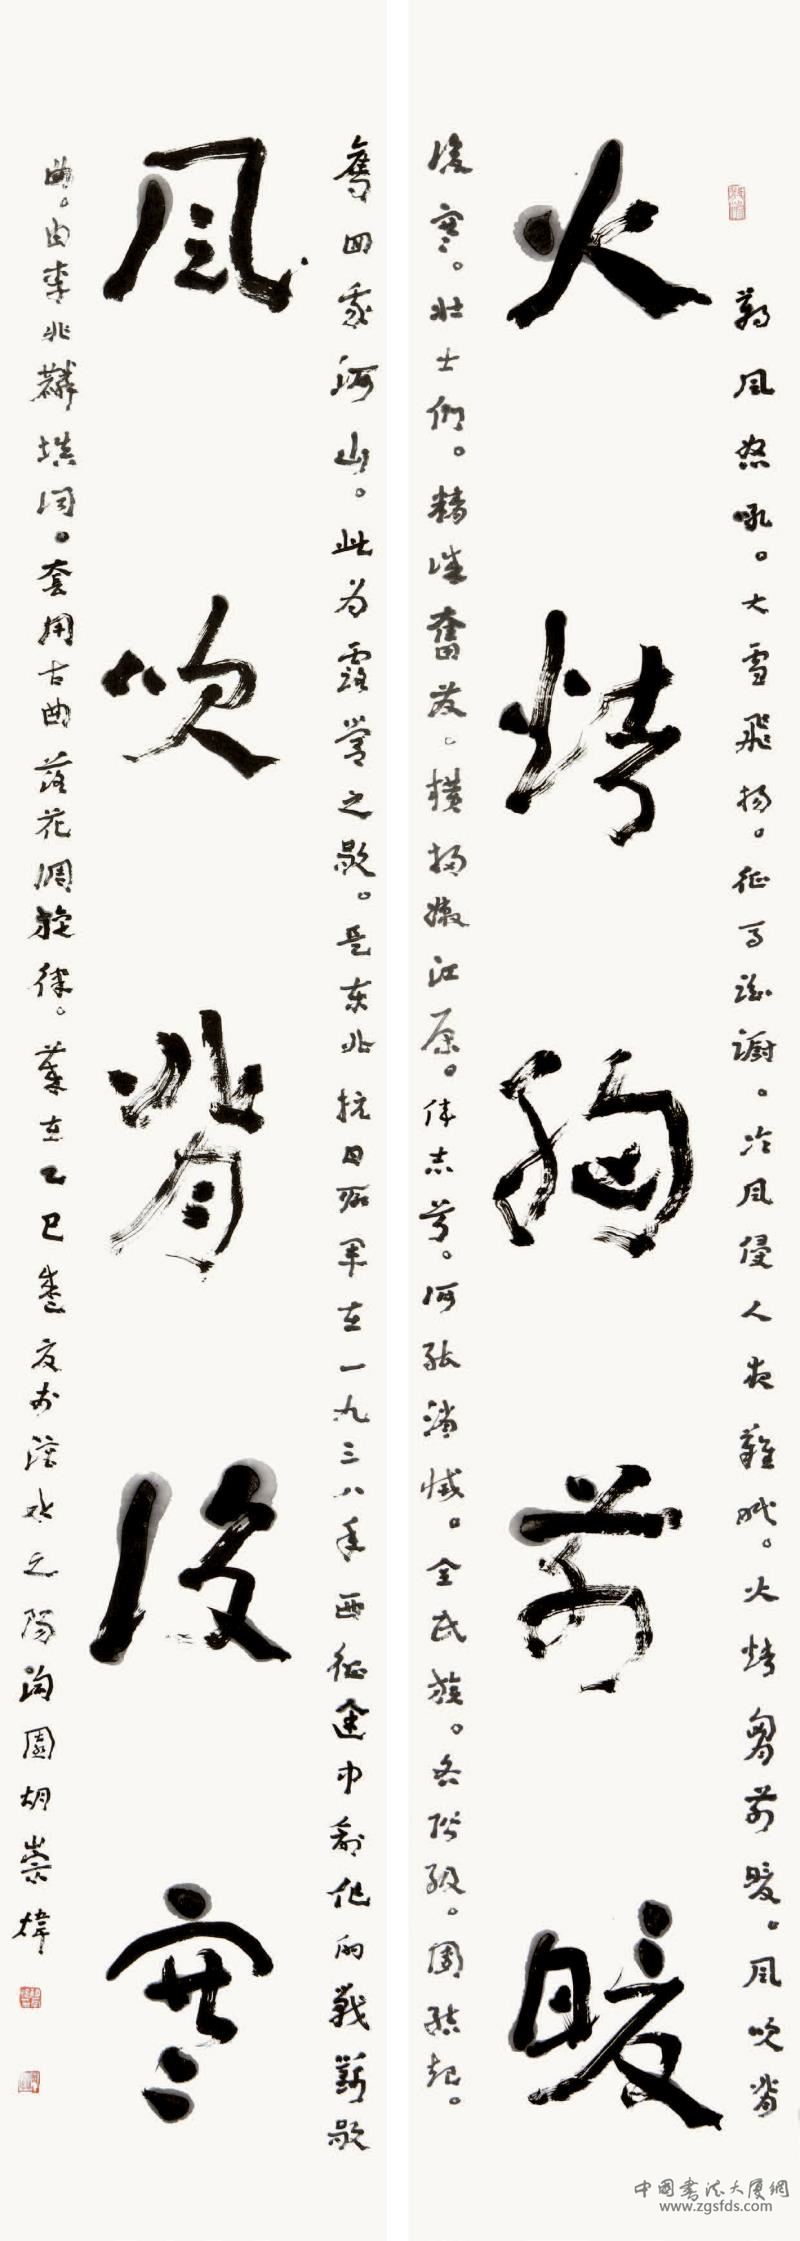 朔風怒吼。大雪飛扬。征马踟蹰。冷風侵人夜難眠。火烤胷前暖。風吹背
火烤胸前暖
後寒。壮士们。精诚奮发。横扫嫩江原。伟志兮。何能消滅。全民族。各階級。團结起。
奪回我河山。此为露营之歌。是东北抗日联军在一九三八年西征途中創作的戰鬥歌
風吹背後寒
曲。由李兆麟填词。套用古曲落花调旋律。岁在乙巳盛夏於 水之陽 園胡崇煒
中国書法大厦網
www.zgsfds.com